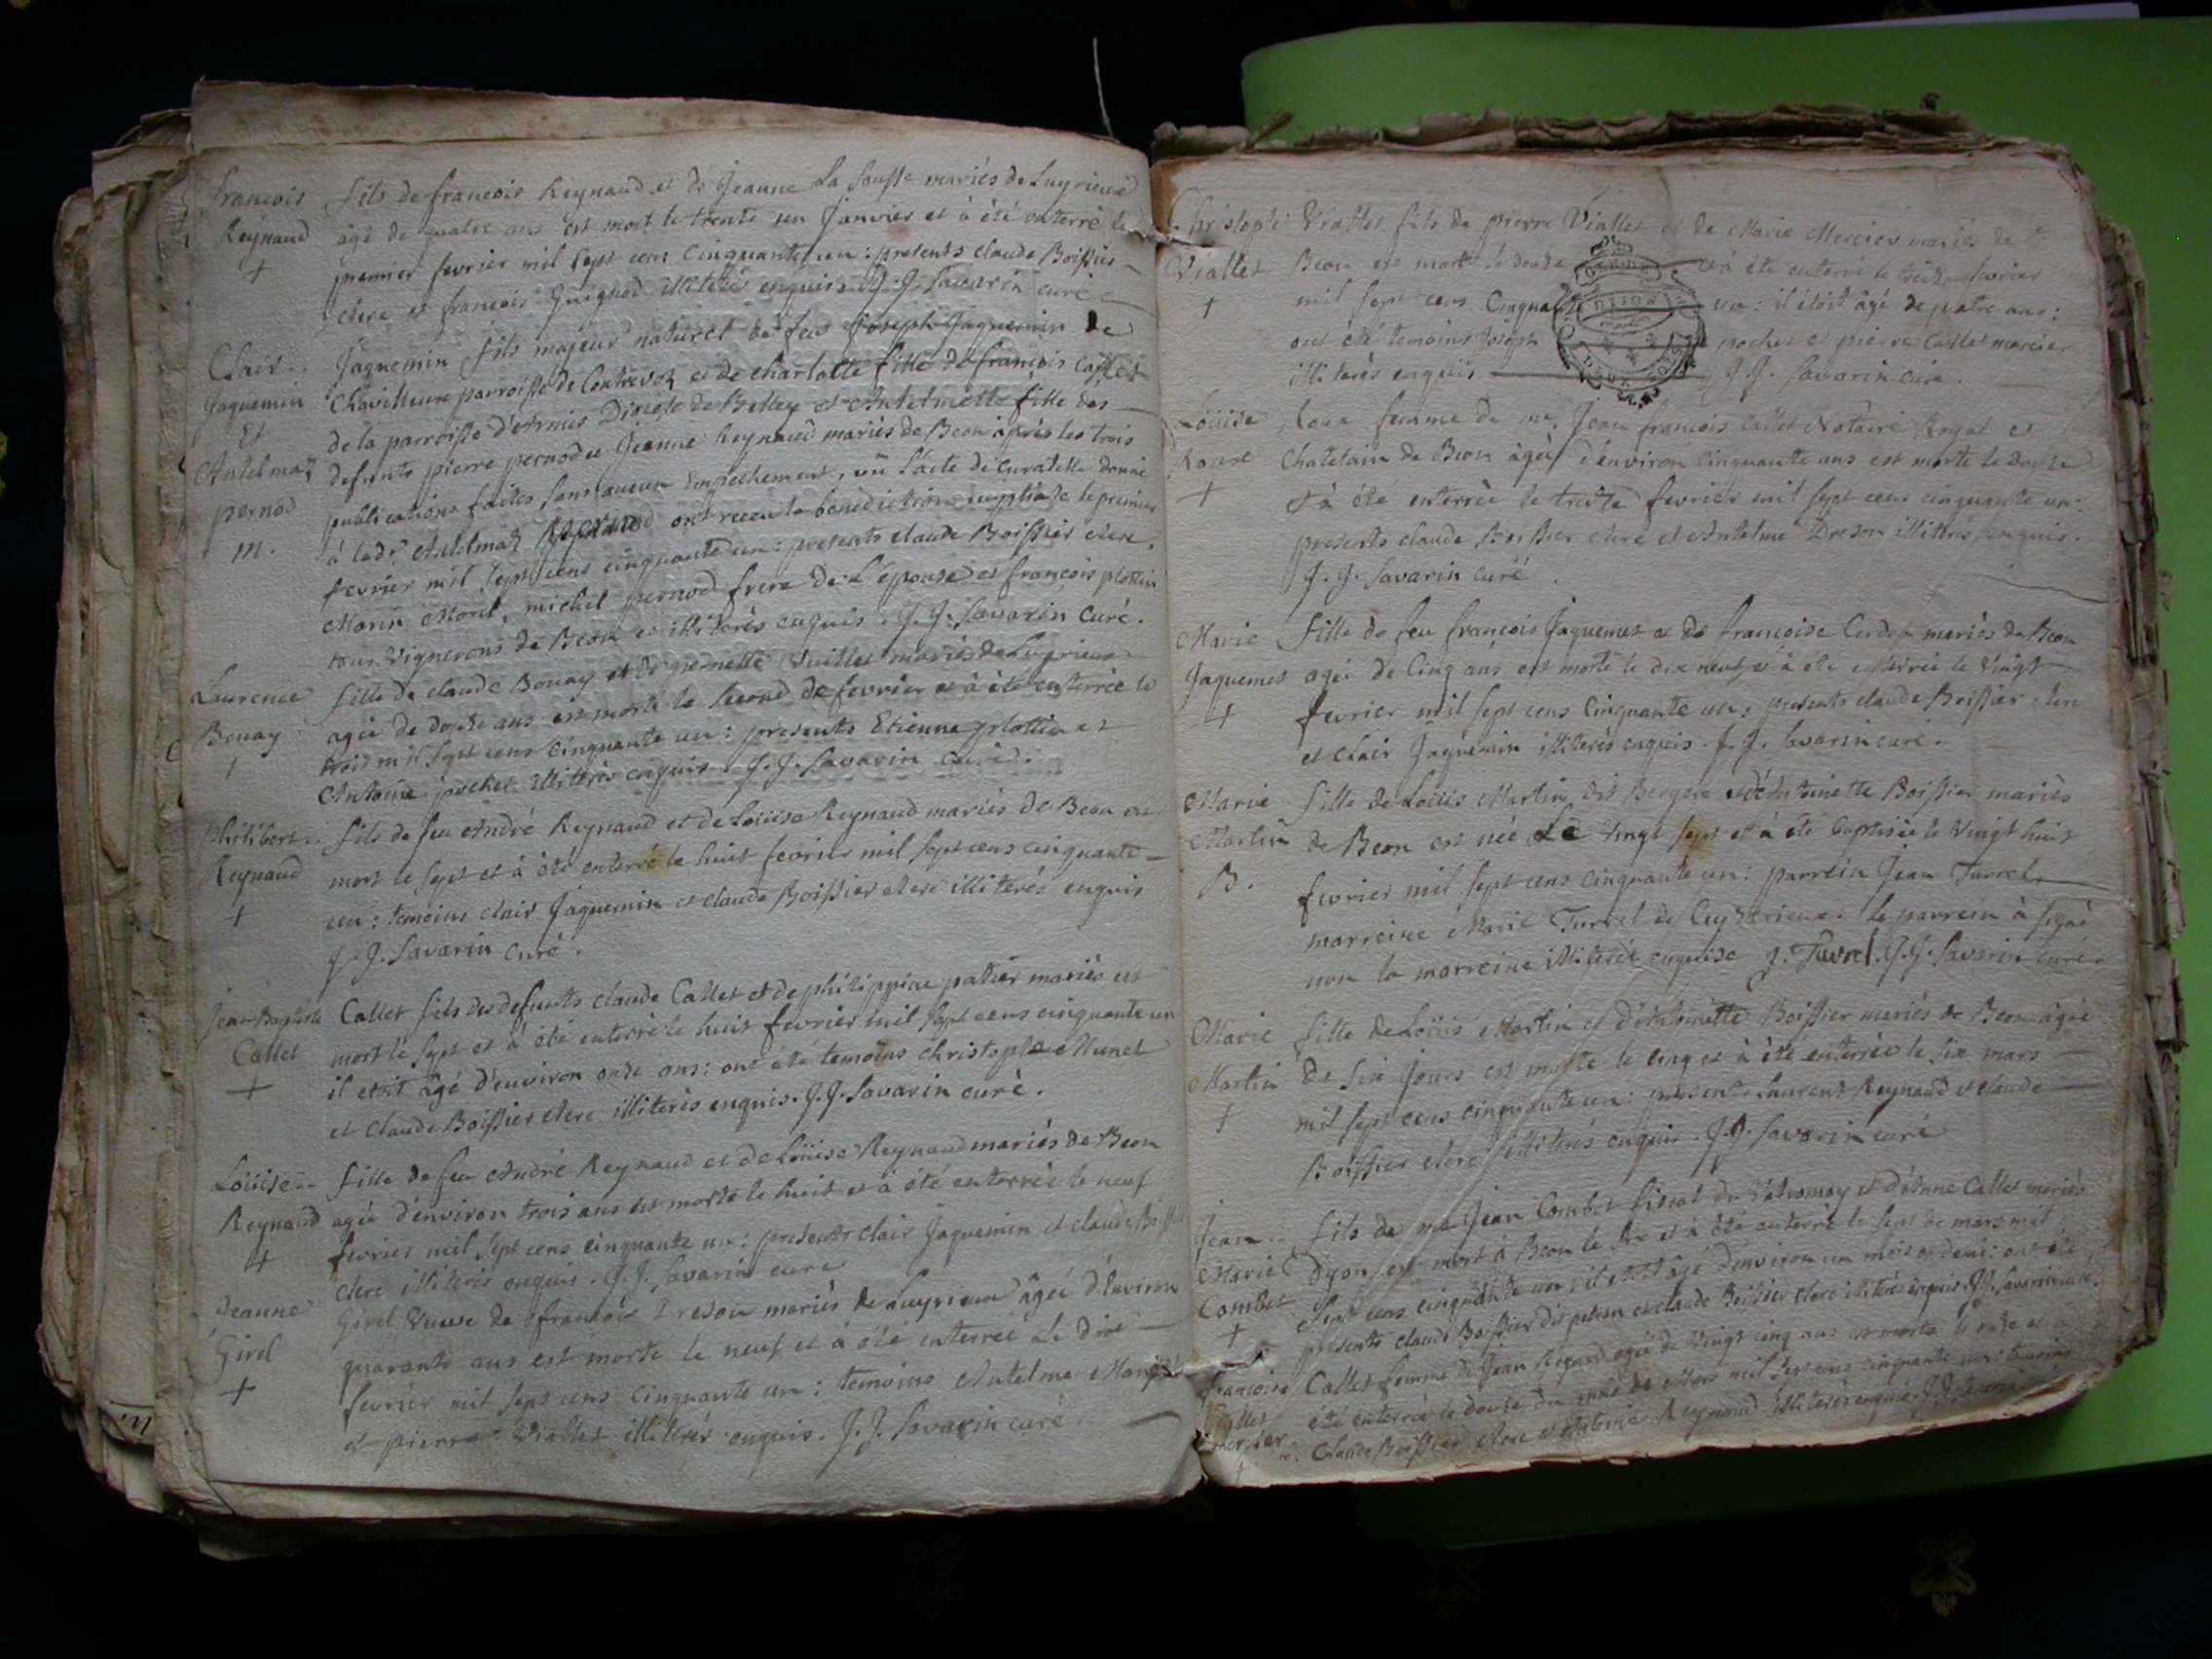 françois
Reynaud
+
fils de françois Reynaud et de Jeanne La Sausse mariés de Luyrieux
âgé de quatre ans est mort le trente un Janvier et à été enterré le
premier fevrier mil sept cens Cinquante un : presents claude Boissier
clere et françois Guignod illiterés enquis. J. J. Savarin curé
Clair
Jaquemin
Et
Antelmaz
pernod
m.
Jaquemin fils majeur naturel de feu Joseph Jaquemin de
Chavilleure parroisse de Contrevoz et de charlotte fille de françois
de la parroisse d'Armis Diocese de Belley et Antelmette fille des
defunts pierre pernod et Jeanne Reynaud mariés de Beon après les trois
publications faites sans aucun Empechement, vû l'acte de Curatelle donné
à lad.e Antelmaz ont receu la benediction nuptiale le premier
fevrier mil sept cens cinquante un : presents claude Boissier clere,
Marin Morel, michel pernod frere de L'épouse et françois plottin
tous Vignerons de Beon et illiterés enquis. J. J. Savarin Curé.
Laurence
Bonay
+
fille de claude Bonay et de pernette Juillet mariés de Luyrieux
agée de douze ans est morte le second de fevrier et à été enterrée le
trois mil sept cens cinquante un : presents Etienne plottin et
Antoine pochet illiterés enquis. J. J. Savarin curé.
philibert
Reynaud
+
fils de feu André Reynaud et de Loüise Reynaud mariés de Beon est
mort le sept et à été enterré le huit fevrier mil sept cens cinquante
un : temoins clair Jaquemin et claude Boissier clere illiterés enquis
J. J. Savarin Curé.
Jean Baptiste
Callet
+
Callet fils des defunts claude Callet et de philippine patier mariés est
mort le sept et à été enterré le huit fevrier mil sept cens cinquante un
il etoit âgé d'environ onze ans : ont été temoins christople Munet
et Claude Boissier clere illiterés enquis. J. J. Savarin curé.
Loüise
Reynaud
+
fille de feu André Reynaud et de Loüise Reynaud mariés de Beon
agée d'environ trois ans est morte le huit et à été enterrée le neuf
fevrier mil sept cens cinquante un : presents clair Jaquemin et claude
clere illiterés enquis. J. J. Savarin curé
Jeanne
Girel
+
Girel Veuve de françois Dreson mariés de Luyrieux âgée d'environ
quarante ans est morte le neuf et à été enterrée Le dixe
fevrier mil sept cens cinquante un : temoins Antelme
et pierre Viallet illiterés enquis. J. J. Savarin curé.
Christople
Viallet
+
Viallet fils de pierre Viallet et de Marie Mercier mariés de
Beon est mort le douze et à été enterré le treize fevrier
mil sept cens Cinquante un : il étoit âgé de quatre ans :
ont été temoins Joseph pochet et pierre Callet mercier
illiterés enquis J. J. Savarin curé.
Loüise
Roux
+
Roux femme de me. Jean françois Callet Notaire Royal et
Chatelain de Beon âgée d'environ cinquante ans est morte le douze
et à été enterrée le treize fevrier mil sept cens cinquante un :
presents claude Boissier clere et Antelme Dreson illiterés enquis.
J. J. Savarin curé.
Marie
Jaquemet
+
fille de feu françois Jaquemet et de françoise mariés de Beon
agée de Cinq ans est morte le dix neuf et à été enterrée le vingt
fevrier mil sept cens Cinquante un : presents claude Boissier clere
et clair Jaquemin illiterés enquis. J. J. Savarin curé.
Marie
Martin
B.
fille de Loüis Martin dit Bergere et d'Antoinette Boissier mariés
de Beon est née Le vingt sept et à été baptisée le vingt huit
fevrier mil sept cens cinquante un : parrein Jean Turrel,
marreine Marie Turrel de Ceyzerieux. le parrein à signé
non la marreine illiterée enquise J. Turrel. J. J. Savarin curé.
Marie
Martin
+
fille de Loüis Martin et d'Antoinette Boissier mariés de Beon âgée
de six jours est morte le cinq et à été enterrée le six mars
mil sept cens cinquante un : presents Laurent Reynaud et claude
Boissier clere illiterés enquis. J. J. Savarin curé
Jean
Marie
Combet
+
fils de me Jean Combet fiscal du Valromay et d'Anne Callet mariés
Dyon est mort à Beon le six et à été enterré le sept de mars mil
sept cens cinquante un : il etoit âgé d'environ un mois et demi : ont été
presents claude Boissier dit et claude Boissier clere illiterés enquis. J. J. Savarin curé.
françoise
Callet
mercier
+
Callet femme de Jean agée de vingt cinq ans est morte le onze et à
été enterrée le douze du mois de Mars mil sept cens cinquante un : temoins
Claude Boissier clere et Antoine Reynaud illiterés enquis. J. J. Savarin